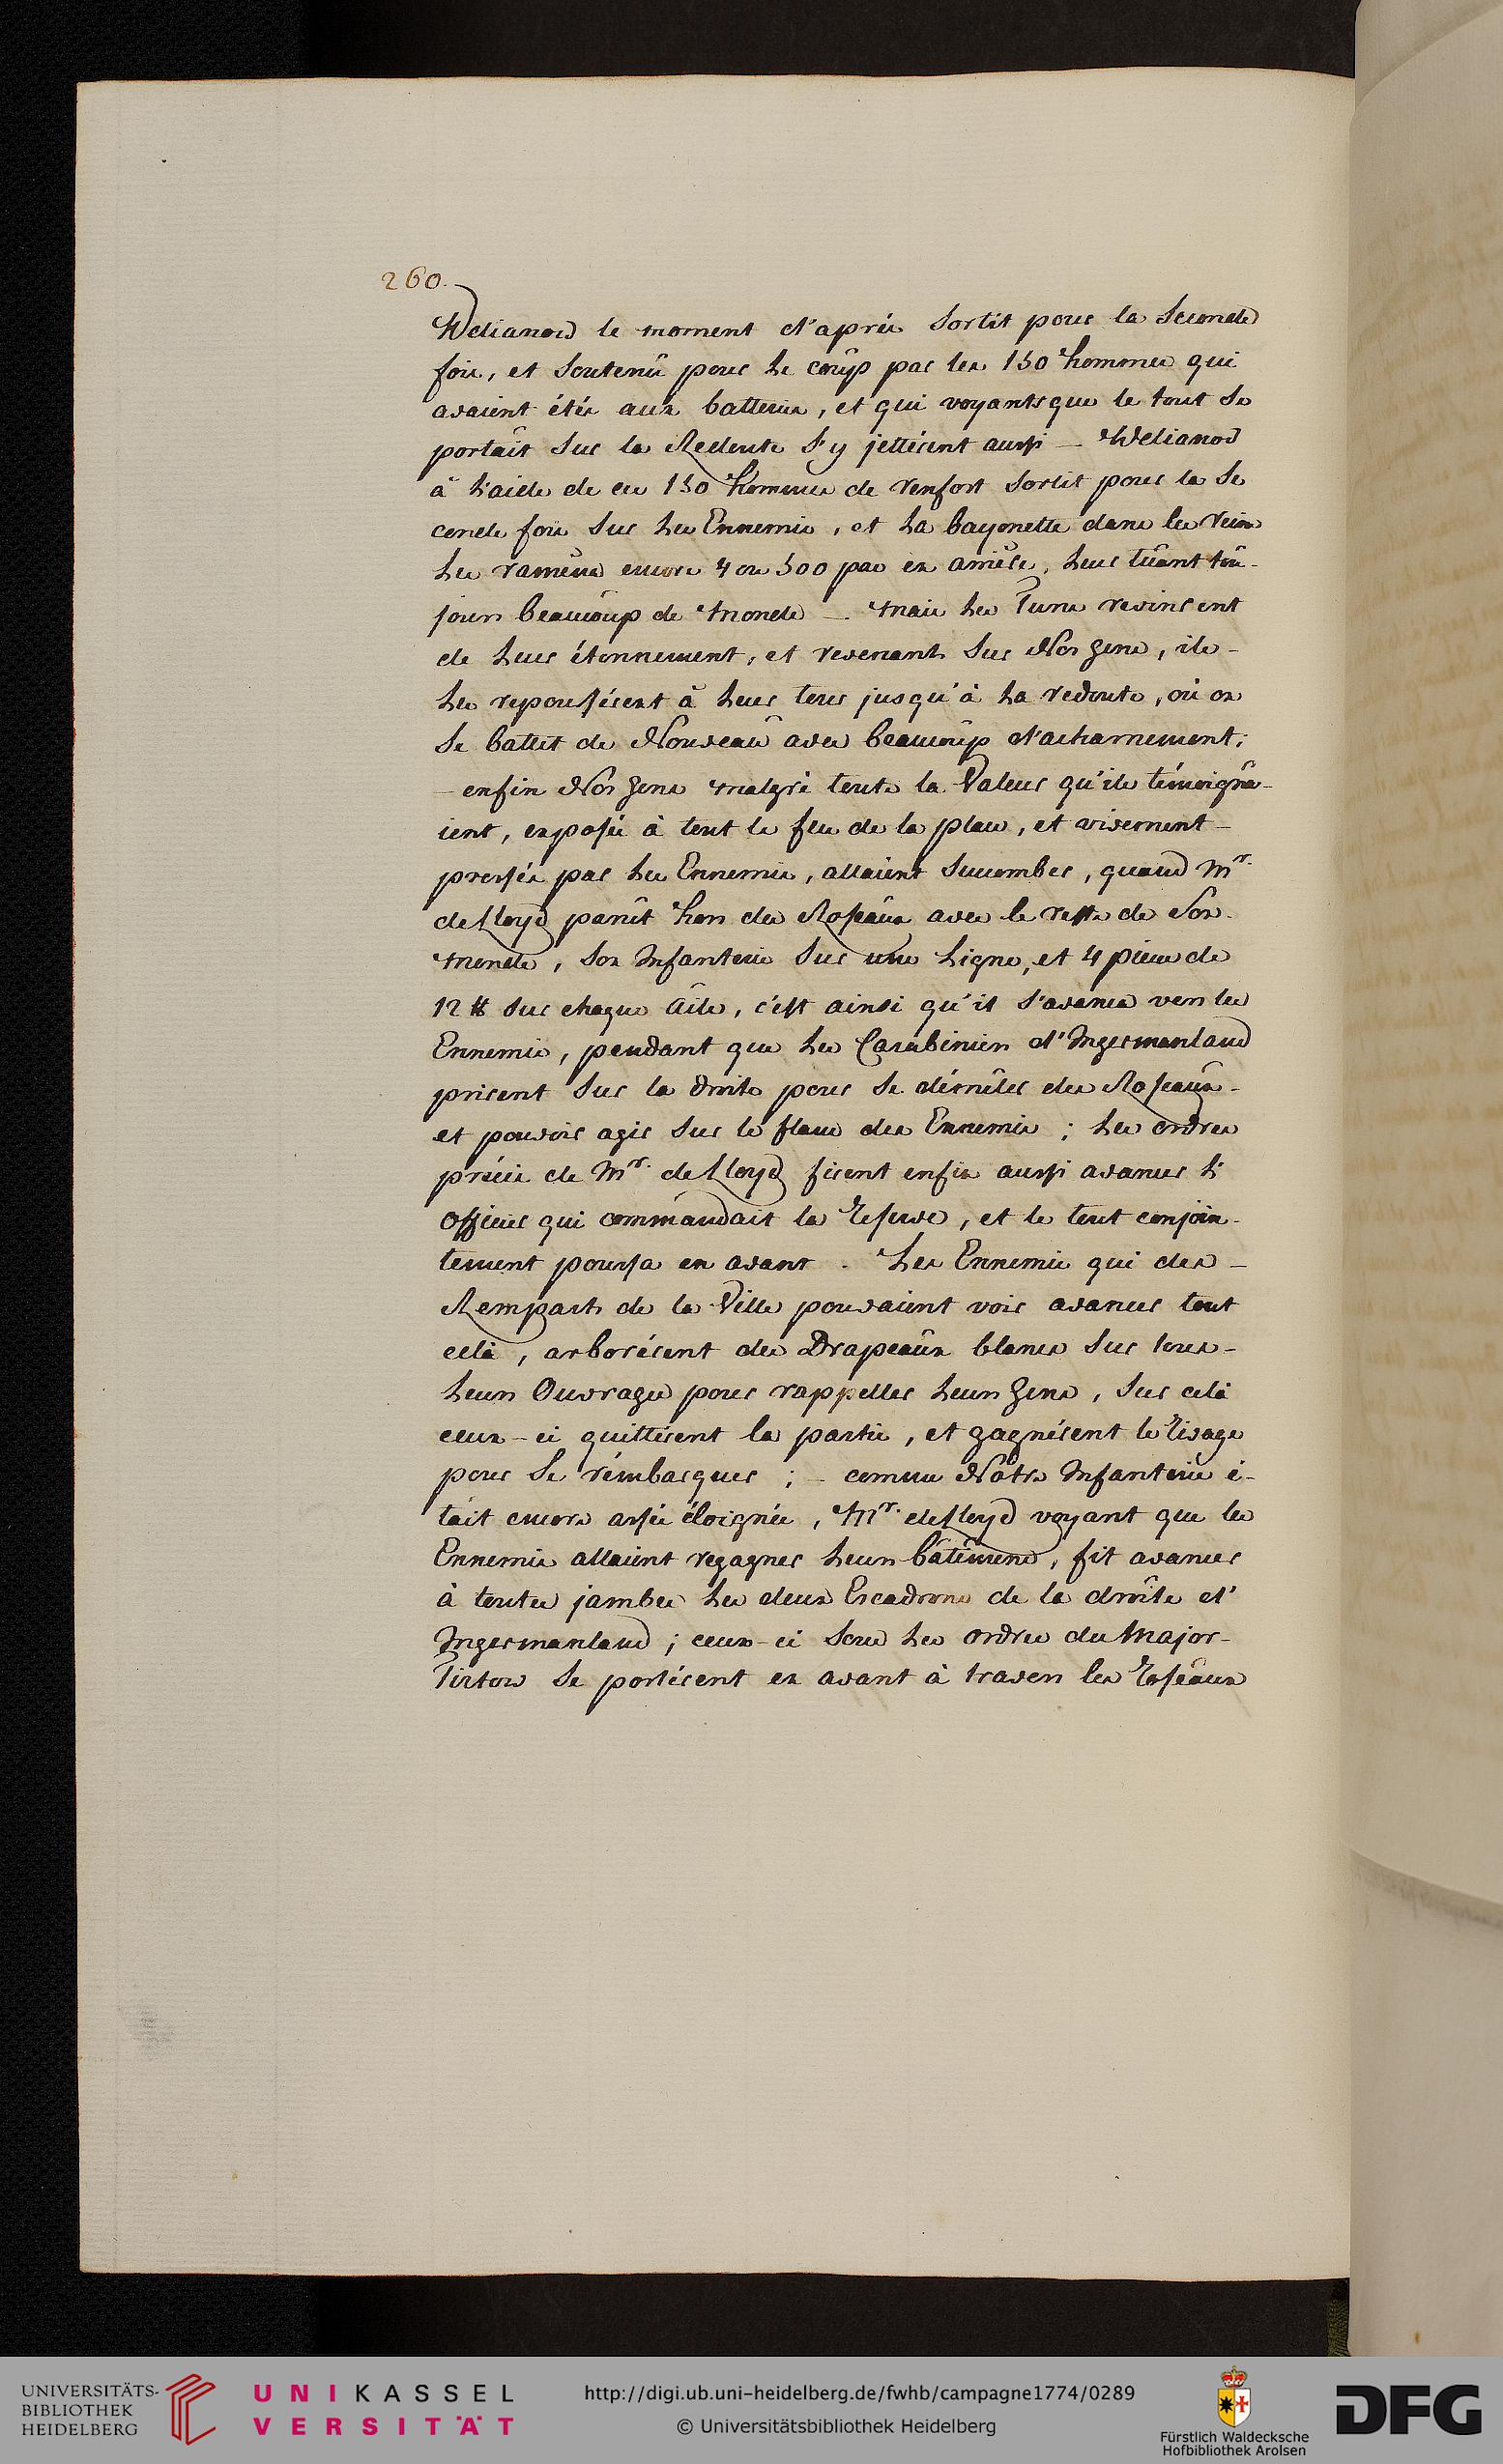 260.
Welianow le moment d'après Sortit pour la Seconde
fois, et Soutenû pour le coûp par les 150 hommes qui
avaient étés aux batteries, et qui voyants que le tout Se
portâit Sur la Redoute S'y jettérent aussi — Welianow
â l'aide de ces 150 hommes de renfort Sortit pour la Se
conde fois Sur les Ennemis, et la bayonette dans les reins
les ramêna encore 4 ou 500 pas en arriêre, leur tüant toû-
jours beaucoup de monde —. mais les Turcs revinrent
de leur étonnement, et revenants Sur Nos gens, ils-
les repoussérent â leur tour jusqu'à la redoute, où on
Se battit de Nouveaû avec beaucoûp d'acharnement;
- enfin Nos gens malgré toute la Valeur qu'ils témoignâ-
ient, exposés à tout le feu de la place, et vivement-
pressés par les Ennemis, allaient Succomber, quand Mr.
de Lloyd parût hors des Roseâux avec le reste de Son-
monde, Son Infanterie Sur une Ligne, et 4 pieces de
12 ℔ Sur chaque Aîle, c'est ainsi qu'il S'avança vers les
Ennemis, pendant que les Carabiniers d'Ingermanland
prirent Sur la droite pour Se démêler des Roseaûx-
et pouvoir agir Sur le flanc des Ennemis ; les ordres
précis de Mr. de Lloyd firent enfin aussi avancer l'
Officier qui commandait la Reserve, et le tout conjoin-
tement poussa en avant . Les Ennemis qui des-
Remparts de la Ville pouvaient voir avancer tout
celà, arborérent des Drapeaûx blancs Sur tous-
leurs Ouvrages pour rappeller leurs gens, Sur celà
ceux-ci quittérent la partie, et gagnérent le Rivage
pour Se rémbarquer ; - comme Nôtre Infanterie é-
tait encore assés éloignée, Mr. de Lloyd voyant que les
Ennemis allaient regagner leurs bâtimens, fit avancer
à toutes jambes les deux Escadrons de la droîte d'
Ingermanland ; ceux-ci Sous les ordres du Major-
Tirtow Se portérent en avant à travers les Roseâux
UNIVERSITÄTS-
BIBLIOTHEK
HEIDELBERG
UNIKASSEL
VERSITÄT
http://digi.ub.uni-heidelberg.de/fwhb/campagne1774/0289
© Universitätsbibliothek Heidelberg
Fürstlich Waldecksche
Hofbibliothek Arolsen
DFG